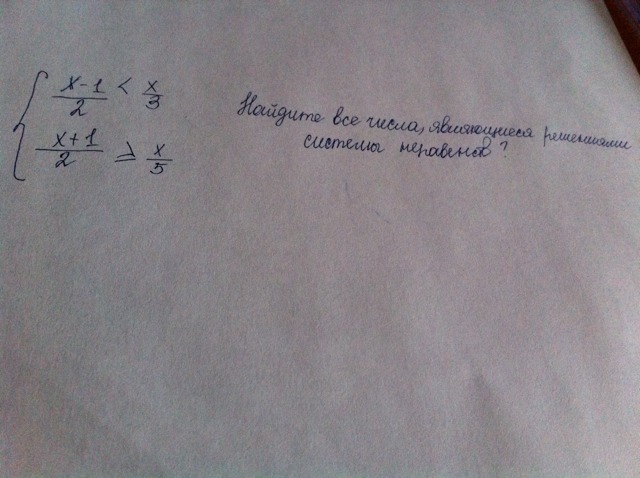 { x-1/2 < x/3
x+1/2 ≥ x/5
Найдите все числа, являющиеся решениями
системы неравенств?